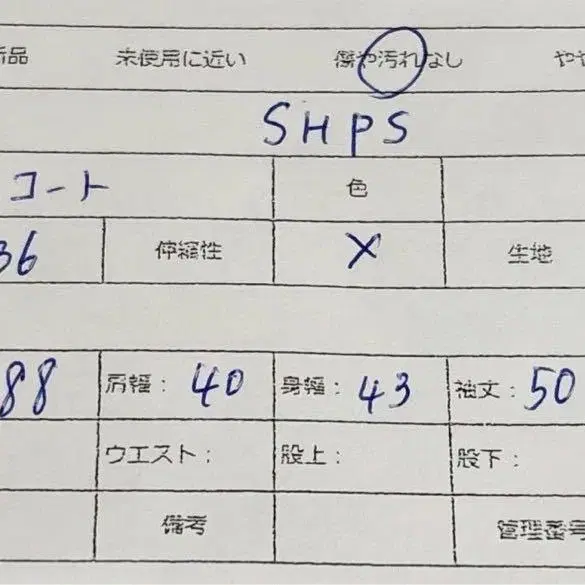 新品 未使用に近い 傷や汚れなし やや
SHPS
コート 色
36 伸縮性 × 生地
88 肩幅: 40 身幅: 43 袖丈: 50
ウエスト: 股上: 股下:
備考 管理番号